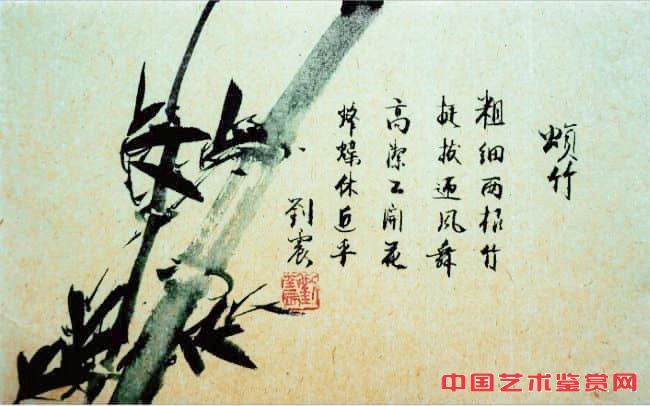 頌竹
粗细两枝竹
挺拔迎風舞
高潔不開花
蜂蝶休近
劉震
中国艺术鉴赏网